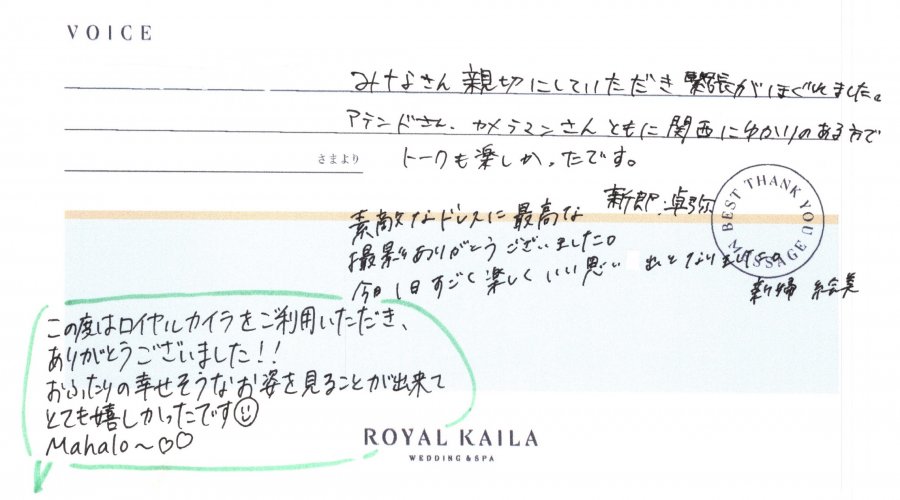 VOICE
みなさん親切にしていただき緊張がほぐれました。
アテンドさん、カメラマンさんともに関西にゆかりのある方で
さまより
トークも楽しかったです。
新郎 卓弥
BEST THANK YOU MESSAGE
素敵なドレスに最高な
撮影ありがとうございました。
今日1日すごく楽しくいい思い出となりました。
新婦 絵美
この度はロイヤルカイラをご利用いただき、
ありがとうございました!!
おふたりの幸せそうなお姿を見ることが出来て
とても嬉しかったです☺
Mahalo～♡♡
ROYAL KAILA
WEDDING & SPA